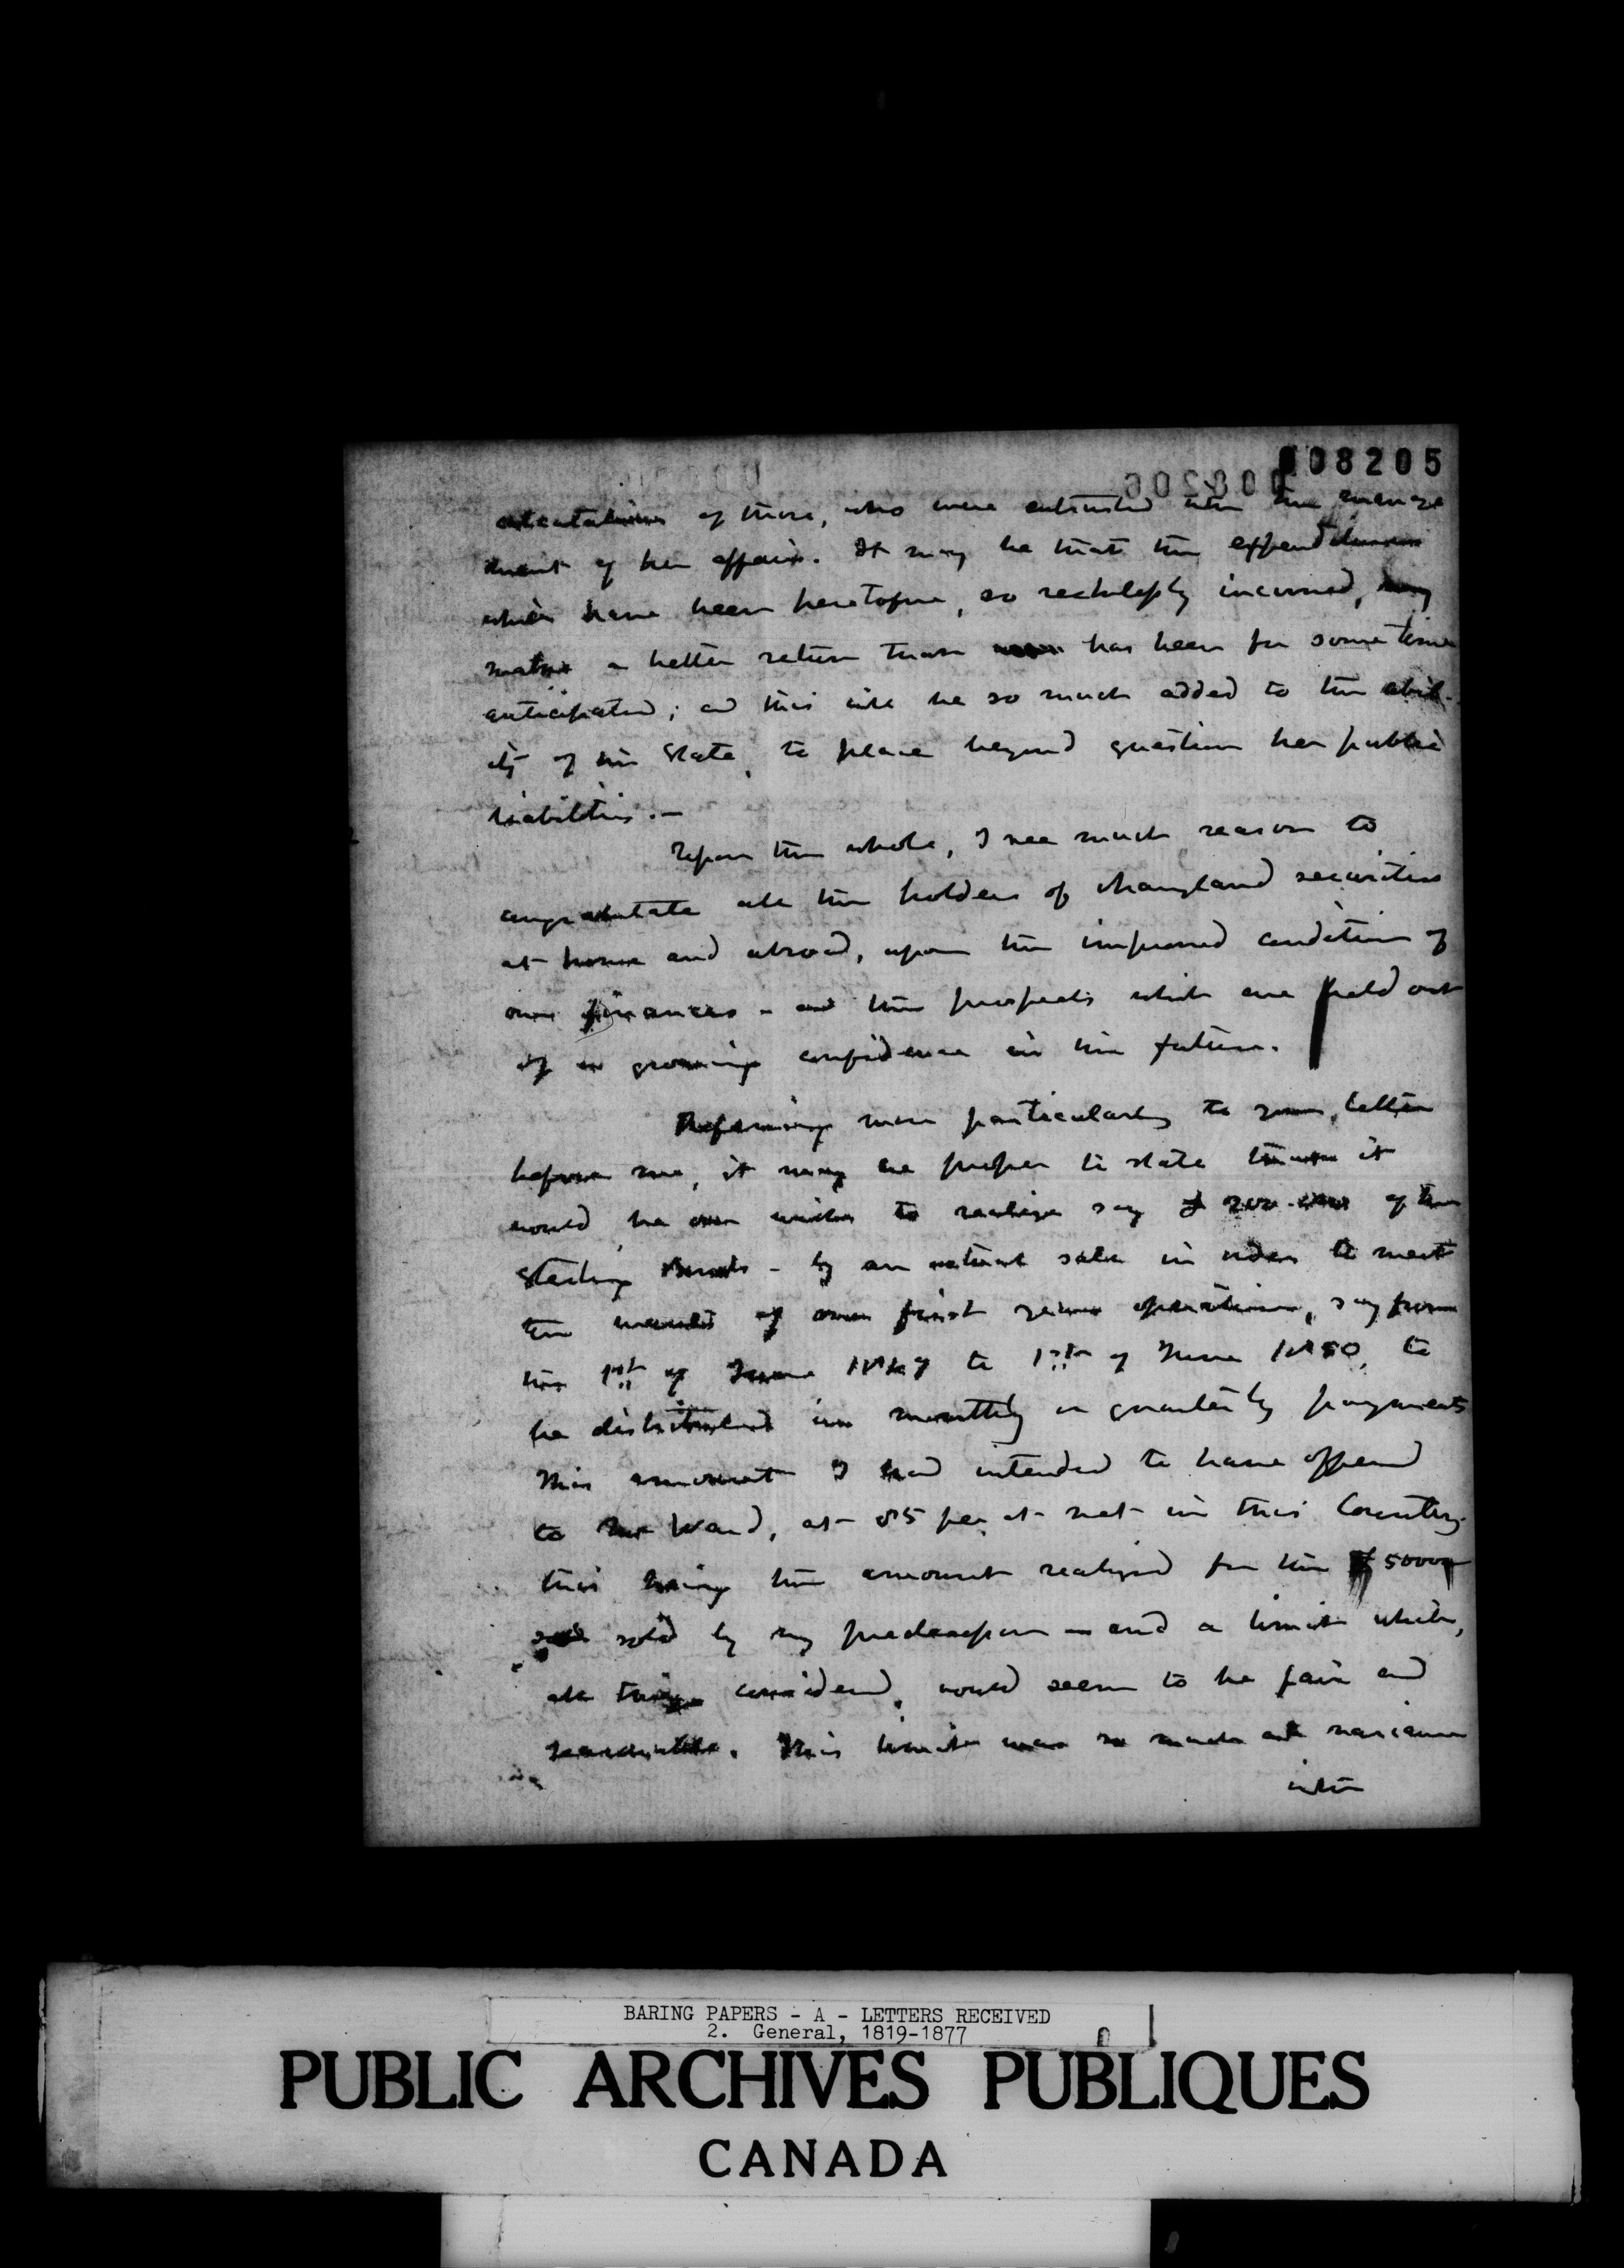 008205
of those, who were entrusted with the manage
ment of her affairs. It may be that the expenditures
which have been heretofore, so recklessly incurred, may
make a better return than has been for some time
anticipated; and this will be so much added to the abil-
ity of the State, to place beyond question her public
liabilities.—
Upon the whole, I see much reason to
congratulate all the holders of Maryland securities
at home and abroad, upon the improved condition of
our finances – and the prospects which are held out
of a growing confidence in the future.
Referring more particularly to your letter
before me, it may be proper to state that it
would be our wish to realize say £ 200.000 of the
Sterling Bonds – by an sale in order to meet
the wants of our first years operations, say from
the 1st of June to 1st of June 1850, to
be distributed in monthly or quarterly payments
This amount I had intended to have offered
to Mr Ward, at 85 per ct net in this Country.
this being the amount realized for the £5000
sold by my predecessor – and a limit which,
all things considered, would seem to be fair and
reasonable. This limit was so much at variance
with
BARING PAPERS - A - LETTERS RECEIVED
2. General, 1819-1877
PUBLIC ARCHIVES PUBLIQUES
CANADA